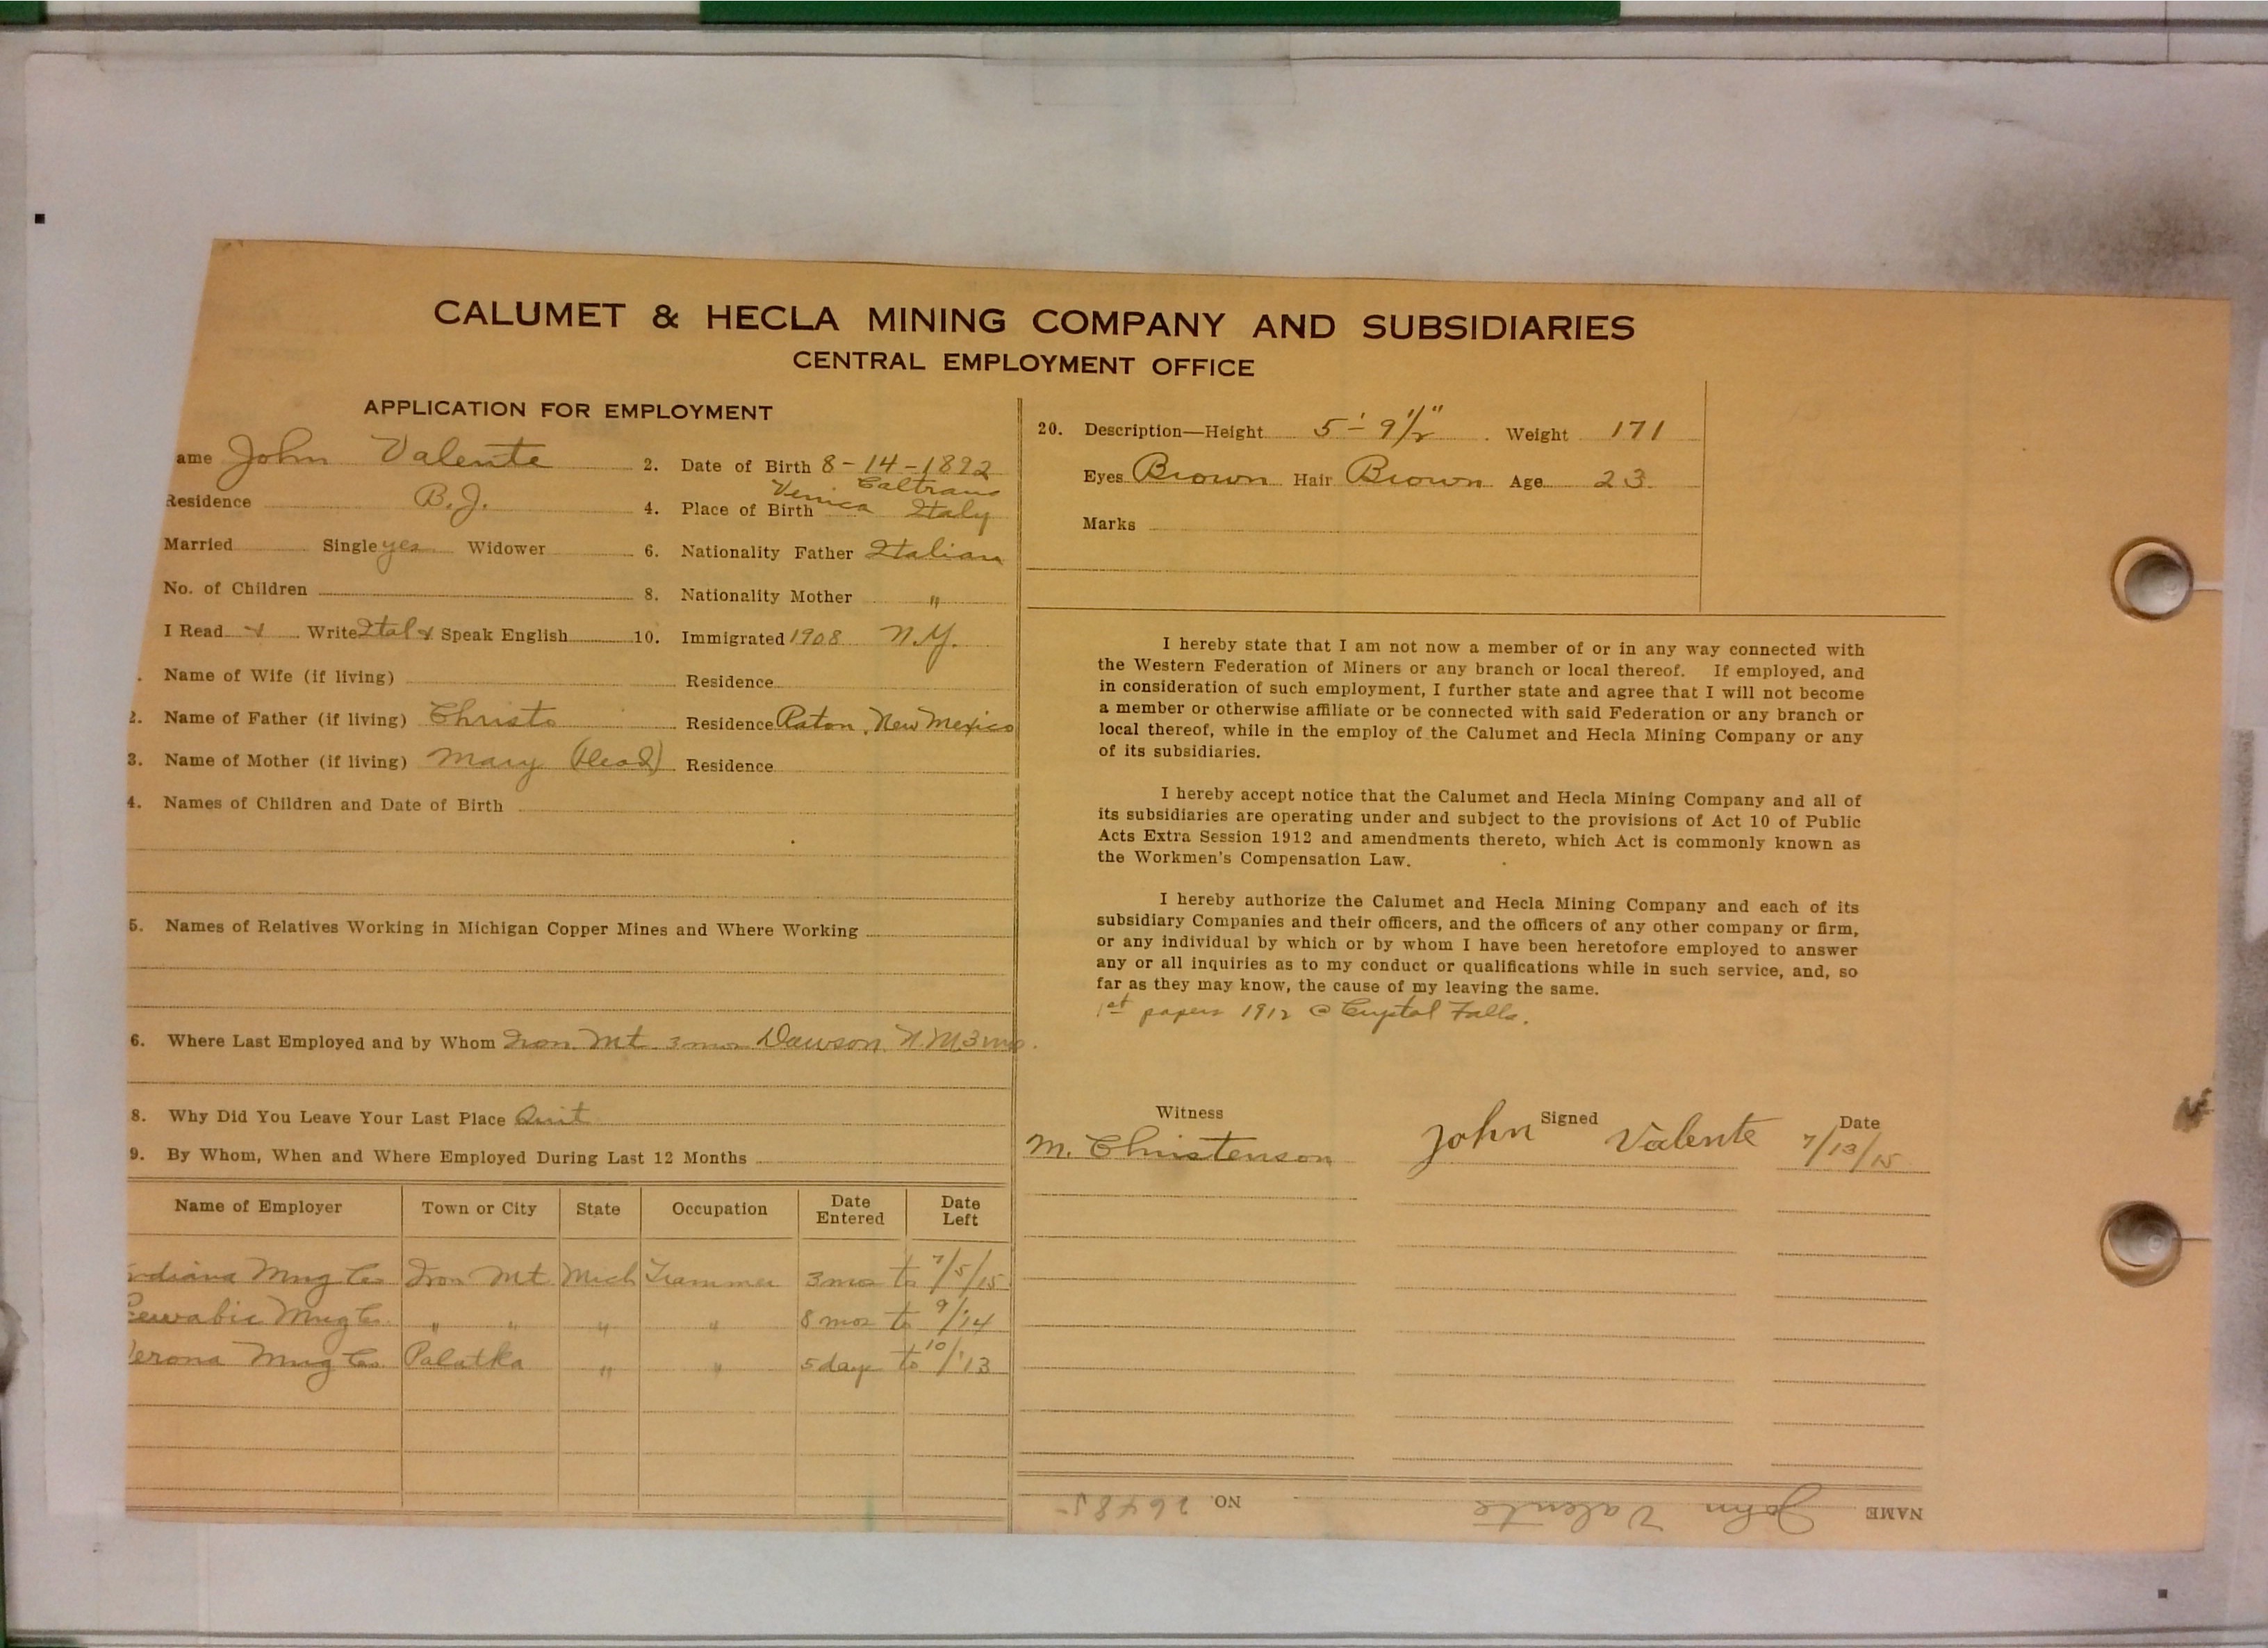 CALUMET & HECLA MINING COMPANY AND SUBSIDIARIES
CENTRAL EMPLOYMENT OFFICE
APPLICATION FOR EMPLOYMENT
ame John Valente 2. Date of Birth 8-14-1892
Residence B.J. 4. Place of Birth Venica Caltrano Italy
Married Single yes Widower 6. Nationality Father Italian
No. of Children 8. Nationality Mother "
I Read & Write Ital & Speak English 10. Immigrated 1908 N.Y.
. Name of Wife (if living) Residence
2. Name of Father (if living) Christo Residence Raton, New Mexico
3. Name of Mother (if living) Mary (Dead) Residence
4. Names of Children and Date of Birth
5. Names of Relatives Working in Michigan Copper Mines and Where Working
6. Where Last Employed and by Whom Iron Mt 3 mos Dawson N.M. 3 mo.
8. Why Did You Leave Your Last Place Quit
9. By Whom, When and Where Employed During Last 12 Months
Name of Employer Town or City State Occupation Date Entered Date Left
ndiana Mng Co Iron Mt Mich Trammer 3 mos to 7/5/15
Pewabic Mng Co. " " " " 8 mos to 9/'14
Verona Mng Co Palatka " " 5 days to 10/'13
20. Description—Height 5'-9 1/2" Weight 171
Eyes Brown Hair Brown Age 23
Marks
I hereby state that I am not now a member of or in any way connected with
the Western Federation of Miners or any branch or local thereof. If employed, and
in consideration of such employment, I further state and agree that I will not become
a member or otherwise affiliate or be connected with said Federation or any branch or
local thereof, while in the employ of the Calumet and Hecla Mining Company or any
of its subsidiaries.
I hereby accept notice that the Calumet and Hecla Mining Company and all of
its subsidiaries are operating under and subject to the provisions of Act 10 of Public
Acts Extra Session 1912 and amendments thereto, which Act is commonly known as
the Workmen's Compensation Law.
I hereby authorize the Calumet and Hecla Mining Company and each of its
subsidiary Companies and their officers, and the officers of any other company or firm,
or any individual by which or by whom I have been heretofore employed to answer
any or all inquiries as to my conduct or qualifications while in such service, and, so
far as they may know, the cause of my leaving the same.
1st papers 1912 @ Crystal Falls.
Witness Signed Date
M. Christenson John Valente 7/13/15
NAME John Valente NO. 26485